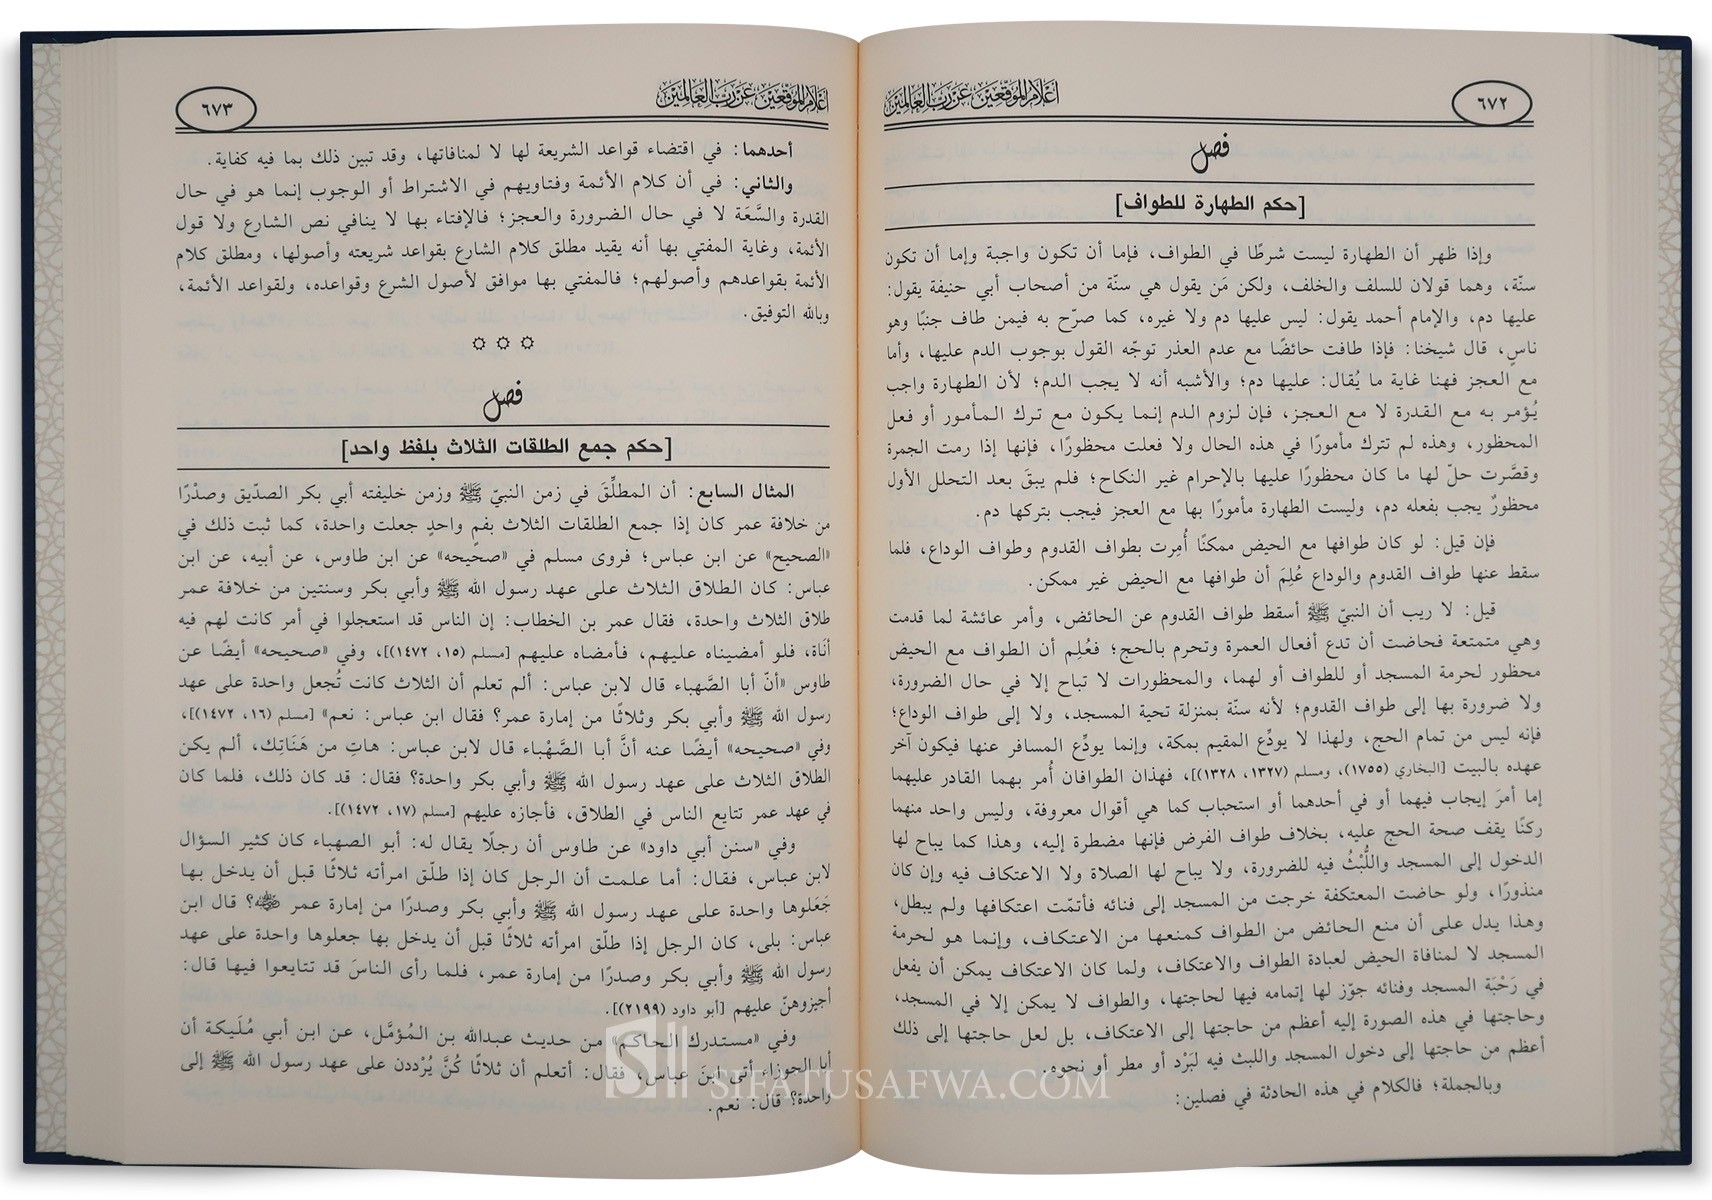 ٦٧٢
أعلام الموقعين عن رب العالمين
فصل
[حكم الطهارة للطواف]
وإذا ظهر أن الطهارة ليست شرطًا في الطواف، فإما أن تكون واجبة وإما أن تكون
سنّة، وهما قولان للسلف والخلف، ولكن مَن يقول هي سنة من أصحاب أبي حنيفة يقول:
عليها دم، والإمام أحمد يقول: ليس عليها دم ولا غيره، كما صرّح به فيمن طاف جنبًا وهو
ناسٍ، قال شيخنا: فإذا طافت حائضًا مع عدم العذر توجّه القول بوجوب الدم عليها، وأما
مع العجز فهنا غاية ما يُقال: عليها دم؛ والأشبه أنه لا يجب الدم؛ لأن الطهارة واجب
يُؤمر به مع القدرة لا مع العجز، فإن لزوم الدم إنما يكون مع ترك المأمور أو فعل
المحظور، وهذه لم تترك مأمورًا في هذه الحال ولا فعلت محظورًا، فإنها إذا رمت الجمرة
وقصَّرت حلّ لها ما كان محظورًا عليها بالإحرام غير النكاح؛ فلم يبقَ بعد التحلل الأول
محظورٌ يجب بفعله دم، وليست الطهارة مأمورًا بها مع العجز فيجب بتركها دم.
فإن قيل: لو كان طوافها مع الحيض ممكنًا أُمِرت بطواف القدوم وطواف الوداع، فلما
سقط عنها طواف القدوم والوداع عُلِمَ أن طوافها مع الحيض غير ممكن.
قيل: لا ريب أن النبيّ ﷺ أسقط طواف القدوم عن الحائض، وأمر عائشة لما قدمت
وهي متمتعة فحاضت أن تدع أفعال العمرة وتحرم بالحج؛ فعُلِم أن الطواف مع الحيض
محظور لحرمة المسجد أو للطواف أو لهما، والمحظورات لا تباح إلا في حال الضرورة،
ولا ضرورة بها إلى طواف القدوم؛ لأنه سنّة بمنزلة تحية المسجد، ولا إلى طواف الوداع؛
فإنه ليس من تمام الحج، ولهذا لا يودّع المقيم بمكة، وإنما يودّع المسافر عنها فيكون آخر
عهده بالبيت [البخاري (١٧٥٥)، ومسلم (١٣٢٧، ١٣٢٨)]، فهذان الطوافان أُمر بهما القادر عليهما
إما أمرَ إيجاب فيهما أو في أحدهما أو استحباب كما هي أقوال معروفة، وليس واحد منهما
ركنًا يقف صحة الحج عليه، بخلاف طواف الفرض فإنها مضطرة إليه، وهذا كما يباح لها
الدخول إلى المسجد واللُّبْثُ فيه للضرورة، ولا يباح لها الصلاة ولا الاعتكاف فيه وإن كان
منذورًا، ولو حاضت المعتكفة خرجت من المسجد إلى فنائه فأتمّت اعتكافها ولم يبطل،
وهذا يدل على أن منع الحائض من الطواف كمنعها من الاعتكاف، وإنما هو لحرمة
المسجد لا لمنافاة الحيض لعبادة الطواف والاعتكاف، ولما كان الاعتكاف يمكن أن يفعل
في رَحْبَة المسجد وفنائه جوّز لها إتمامه فيها لحاجتها، والطواف لا يمكن إلا في المسجد،
وحاجتها في هذه الصورة إليه أعظم من حاجتها إلى الاعتكاف، بل لعل حاجتها إلى ذلك
أعظم من حاجتها إلى دخول المسجد واللبث فيه لبَرْد أو مطر أو نحوه.
وبالجملة؛ فالكلام في هذه الحادثة في فصلين:
أعلام الموقعين عن رب العالمين
٦٧٣
أحدهما: في اقتضاء قواعد الشريعة لها لا لمنافاتها، وقد تبين ذلك بما فيه كفاية.
والثاني: في أن كلام الأئمة وفتاويهم في الاشتراط أو الوجوب إنما هو في حال
القدرة والسَّعَة لا في حال الضرورة والعجز؛ فالإفتاء بها لا ينافي نص الشارع ولا قول
الأئمة، وغاية المفتي بها أنه يقيد مطلق كلام الشارع بقواعد شريعته وأصولها، ومطلق كلام
الأئمة بقواعدهم وأصولهم؛ فالمفتي بها موافق لأصول الشرع وقواعده، ولقواعد الأئمة،
وبالله التوفيق.
فصل
[حكم جمع الطلقات الثلاث بلفظ واحد]
المثال السابع: أن المطلِّقَ في زمن النبيّ ﷺ وزمن خليفته أبي بكر الصدّيق وصدْرًا
من خلافة عمر كان إذا جمع الطلقات الثلاث بفمٍ واحدٍ جعلت واحدة، كما ثبت ذلك في
«الصحيح» عن ابن عباس؛ فروى مسلم في «صحيحه» عن ابن طاوس، عن أبيه، عن ابن
عباس: كان الطلاق الثلاث على عهد رسول الله ﷺ وأبي بكر وسنتين من خلافة عمر
طلاق الثلاث واحدة، فقال عمر بن الخطاب: إن الناس قد استعجلوا في أمر كانت لهم فيه
أنَاة، فلو أمضيناه عليهم، فأمضاه عليهم [مسلم (١٥، ١٤٧٢)]، وفي «صحيحه» أيضًا عن
طاوس «أنّ أبا الصَّهباء قال لابن عباس: ألم تعلم أن الثلاث كانت تُجعل واحدة على عهد
رسول الله ﷺ وأبي بكر وثلاثًا من إمارة عمر؟ فقال ابن عباس: نعم» [مسلم (١٦، ١٤٧٢)]،
وفي «صحيحه» أيضًا عنه أنَّ أبا الصَّهْباء قال لابن عباس: هاتِ من هَنَاتِك، ألم يكن
الطلاق الثلاث على عهد رسول الله ﷺ وأبي بكر واحدة؟ فقال: قد كان ذلك، فلما كان
في عهد عمر تتايع الناس في الطلاق، فأجازه عليهم [مسلم (١٧، ١٤٧٢)].
وفي «سنن أبي داود» عن طاوس أن رجلًا يقال له: أبو الصهباء كان كثير السؤال
لابن عباس، فقال: أما علمت أن الرجل كان إذا طلّق امرأته ثلاثًا قبل أن يدخل بها
جَعَلوها واحدة على عهد رسول الله ﷺ وأبي بكر وصدرًا من إمارة عمر ؟ قال ابن
عباس: بلى، كان الرجل إذا طلّق امرأته ثلاثًا قبل أن يدخل بها جعلوها واحدة على عهد
رسول الله ﷺ وأبي بكر وصدرًا من إمارة عمر، فلما رأى الناسَ قد تتايعوا فيها قال:
أجيزوهنّ عليهم [أبو داود (٢١٩٩)].
وفي «مستدرك الحاكم» من حديث عبدالله بن المُؤمَّل، عن ابن أبي مُلَيكة أن
أبا الجوزاء أتى ابنَ عباس، فقال: أتعلم أن ثلاثًا كُنَّ يُرْددن على عهد رسول الله ﷺ إلى
واحدة؟ قال: نعم.
SIFATUSAFWA.COM